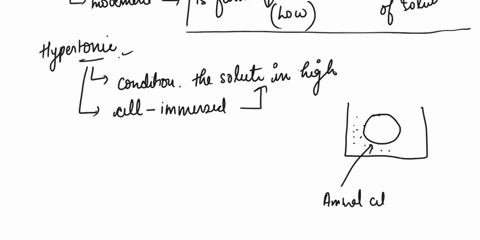 movement → is
(Low)
of solute
Hypertonic
condition. the solute in high
cell - immersed
Animal cel